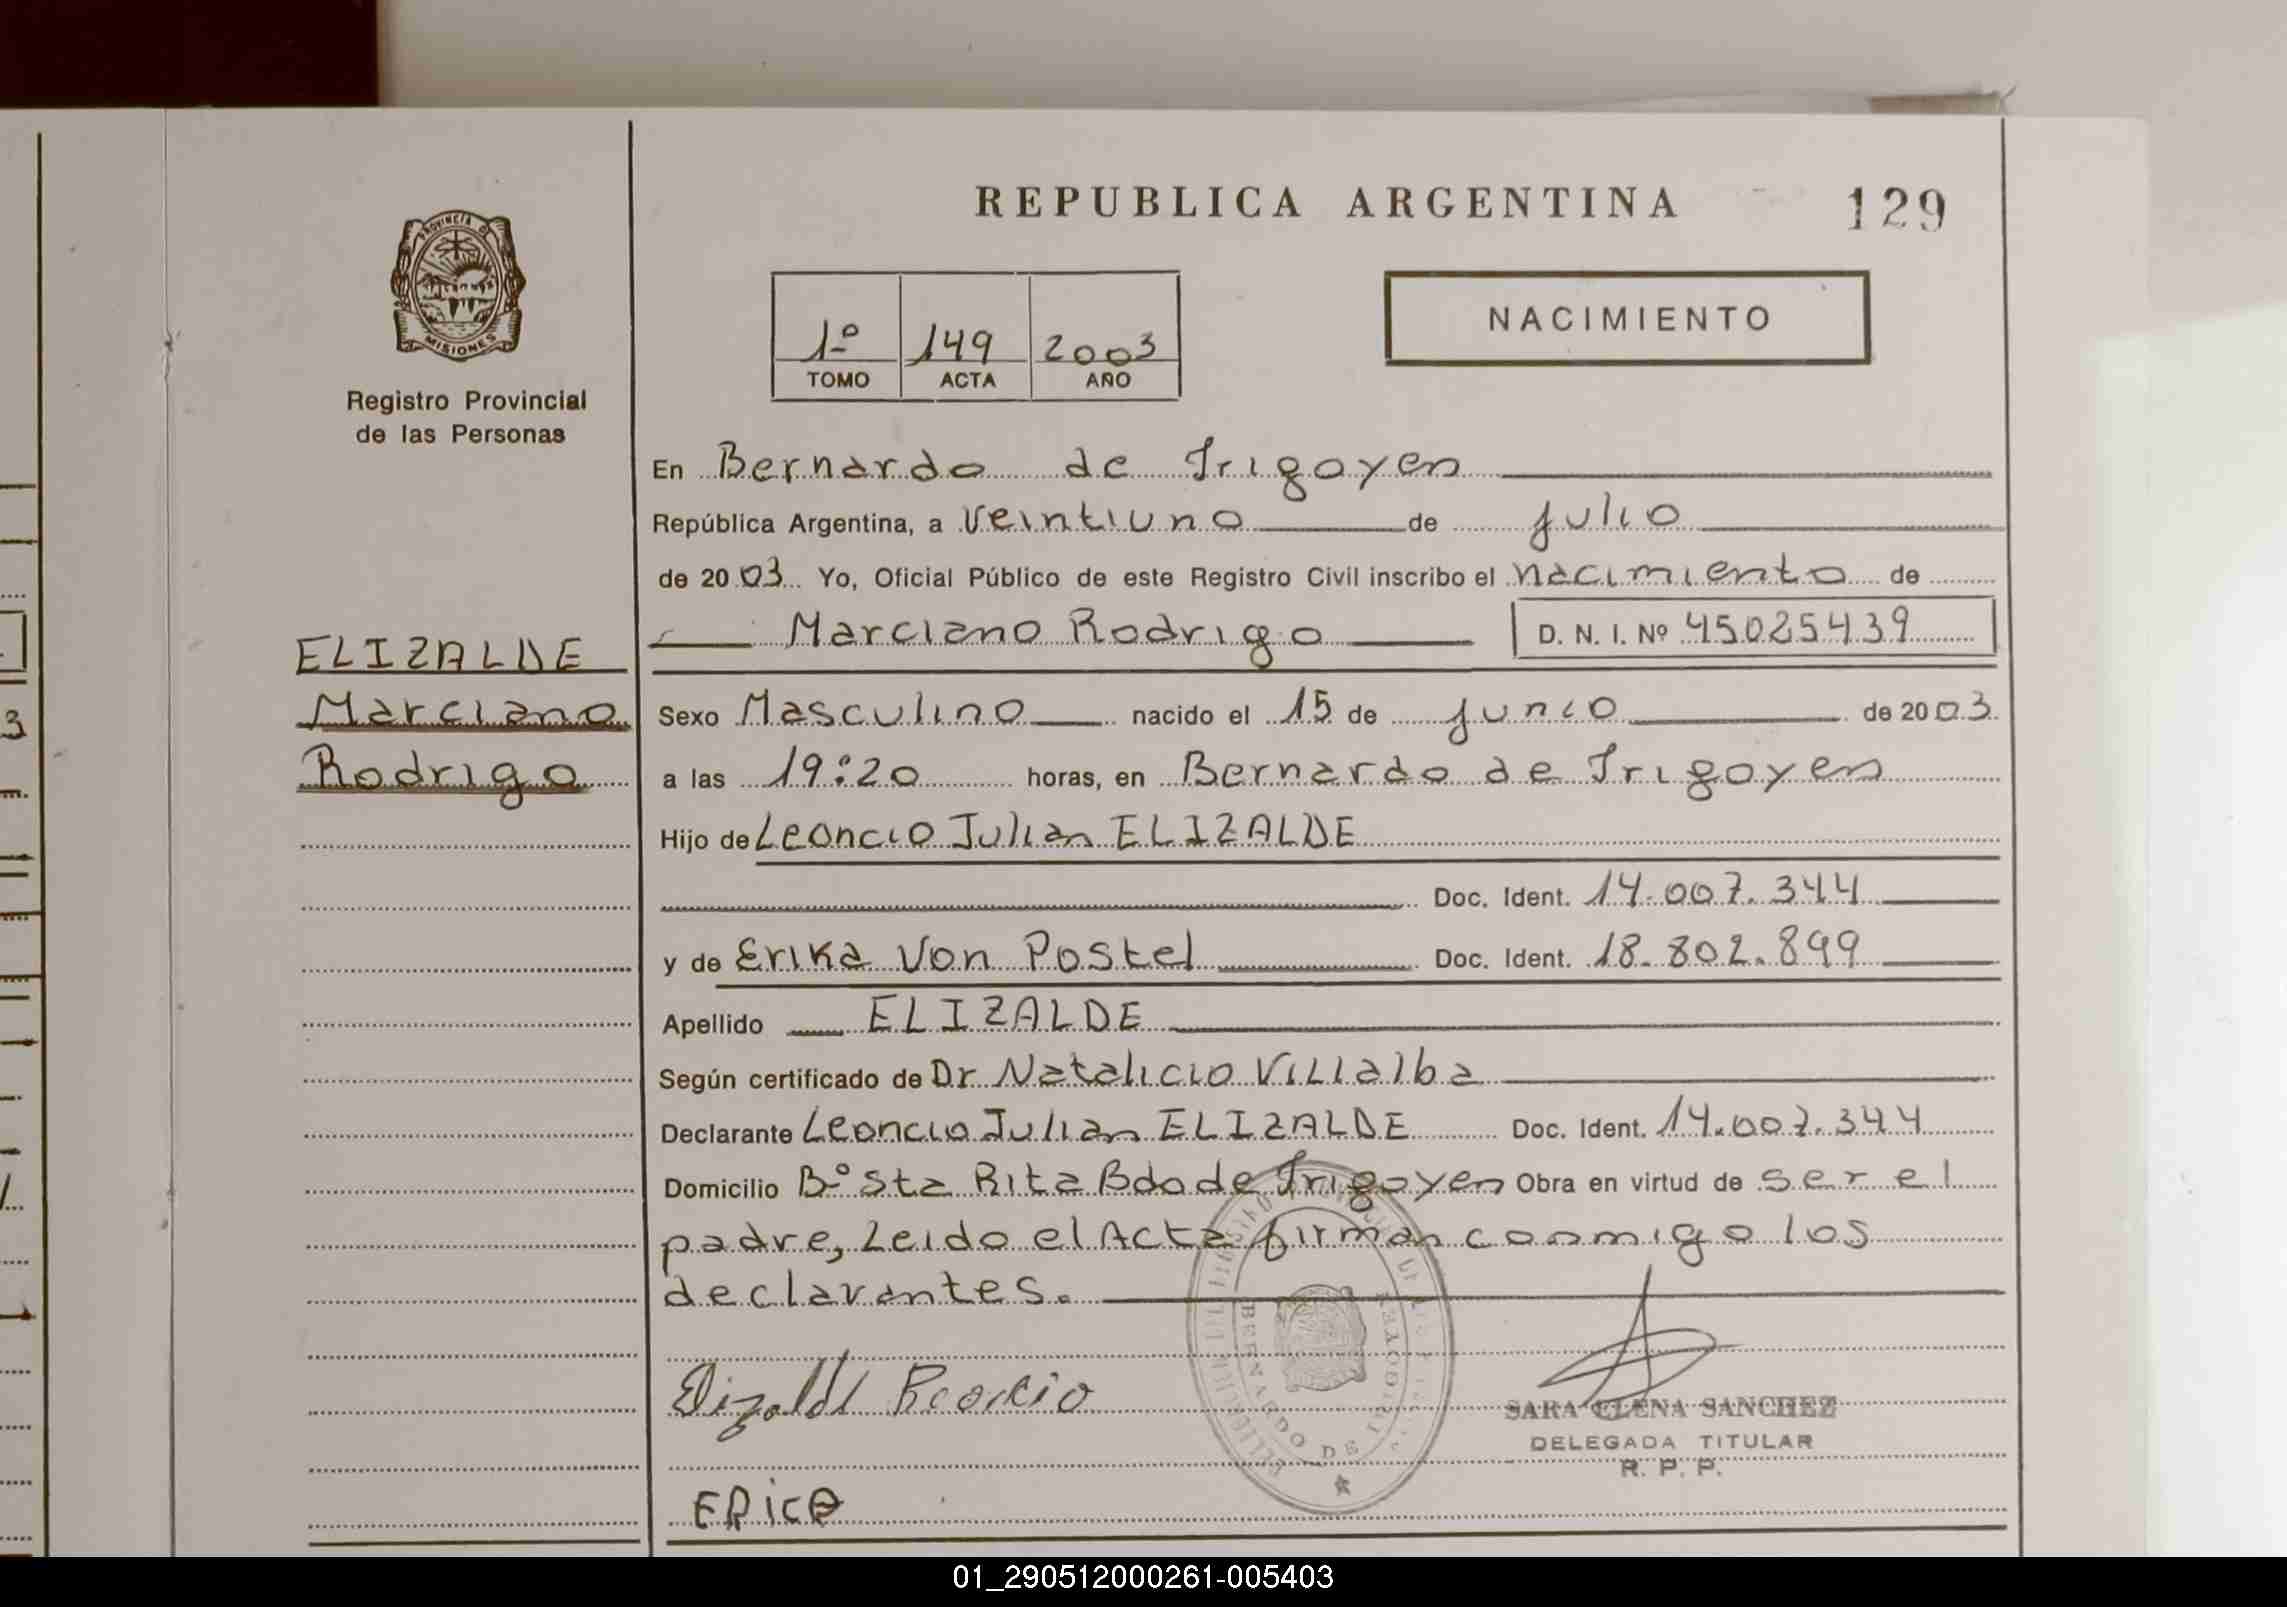 REPUBLICA ARGENTINA
129
PROVINCIA DE
MISIONES
Registro Provincial
de las Personas
1º 149 2003
TOMO ACTA AÑO
NACIMIENTO
ELIZALDE
Marciano
Rodrigo
En Bernardo de Irigoyen
República Argentina, a Veintiuno de julio
de 2003 Yo, Oficial Público de este Registro Civil inscribo el nacimiento de
Marciano Rodrigo D. N. I. Nº 45025439
Sexo Masculino nacido el 15 de junio de 2003
a las 19:20 horas, en Bernardo de Irigoyen
Hijo de Leoncio Julian ELIZALDE
Doc. Ident. 14.007.344
y de Erika Von Postel Doc. Ident. 18.802.899
Apellido ELIZALDE
Según certificado de Dr Natalicio Villalba
Declarante Leoncio Julian ELIZALDE Doc. Ident. 14.007.344
Domicilio Bº Sta Rita Bdo de Irigoyen Obra en virtud de ser el
padre, Leido el Acta firman conmigo los
declarantes.
BERNARDO DE
SARA ELENA SANCHEZ
DELEGADA TITULAR
R. P. P.
ERica
01_290512000261-005403